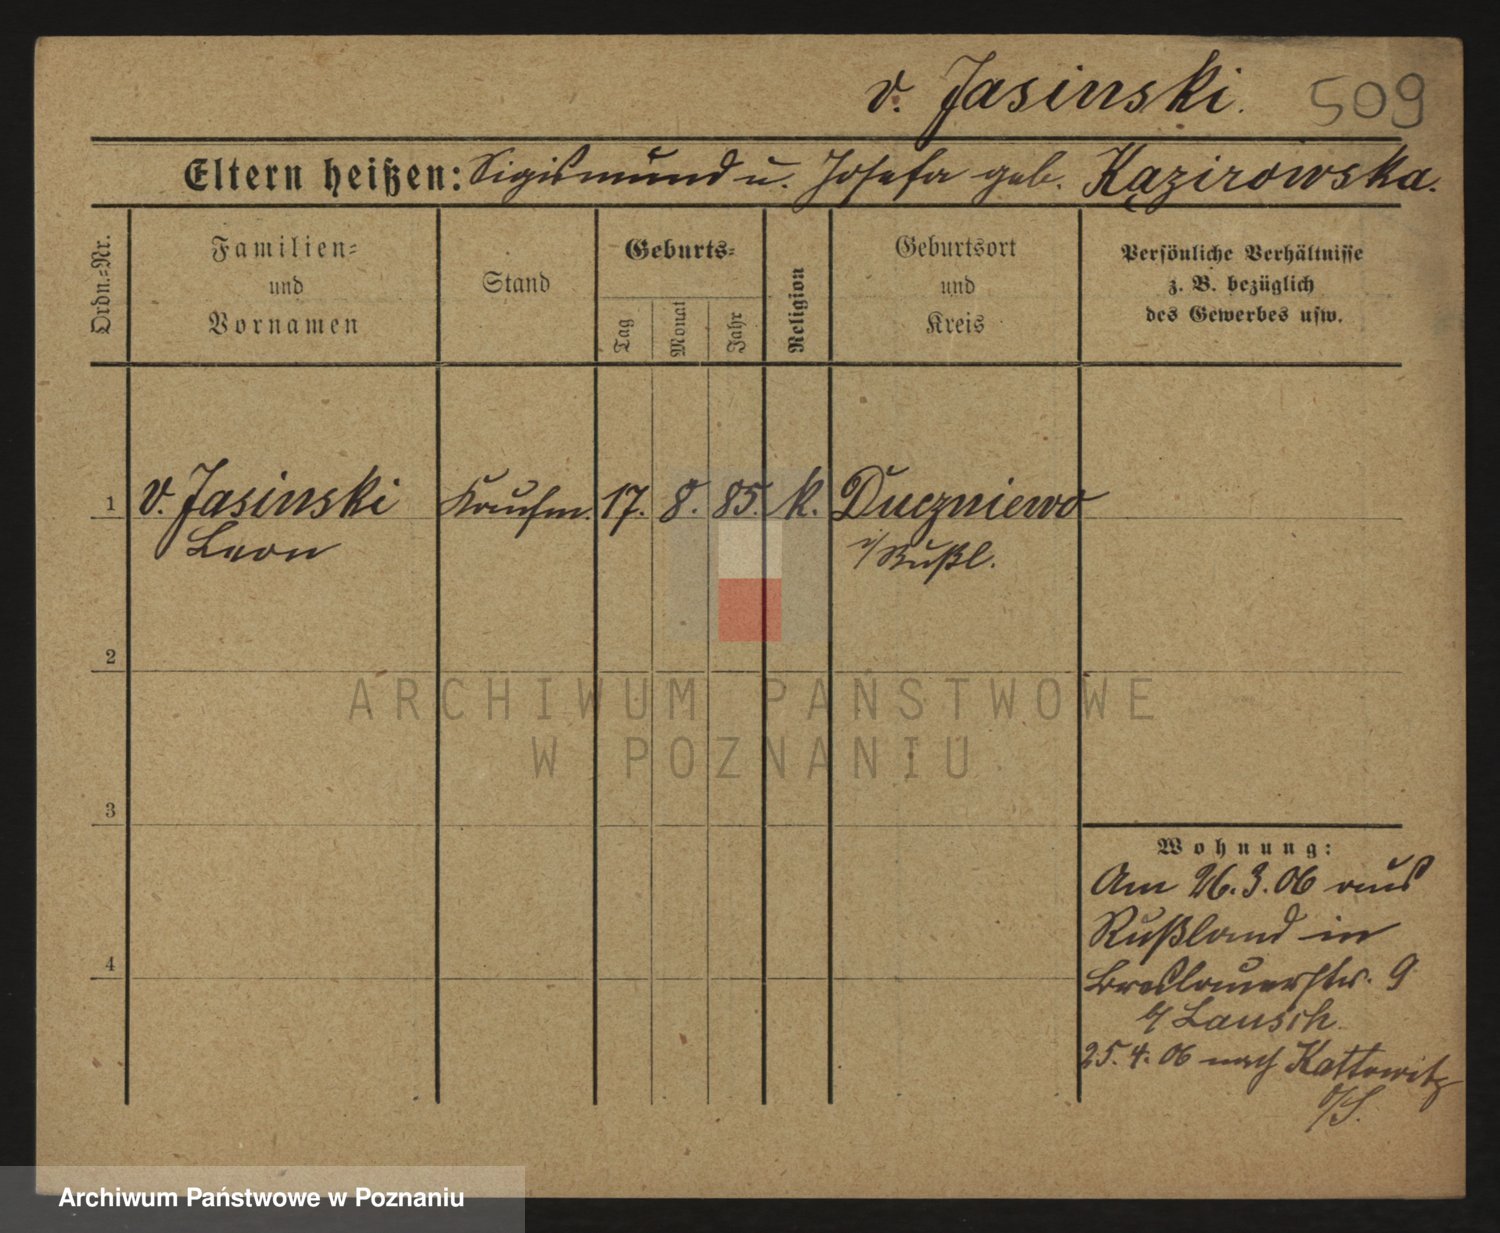 v. Jasinski. 509
Eltern heißen: Sigismund u. Josefa geb. Kązirowska.
Ordn.-Nr.
Familien-
und
Vornamen
Stand
Geburts-
Tag
Monat
Jahr
Religion
Geburtsort
und
Kreis
Persönliche Verhältnisse
z. B. bezüglich
des Gewerbes usw.
1 v. Jasinski Kaufm. 17. 8. 85. k. Duczniewo
Leon i/Rußl.
2
3
4
Wohnung:
Am 26.3.06 aus
Rußland in
Breslauerstr. 9
b/ Lausch
25.4.06 nach Kattowitz
O/S.
ARCHIWUM PAŃSTWOWE
W POZNANIU
Archiwum Państwowe w Poznaniu